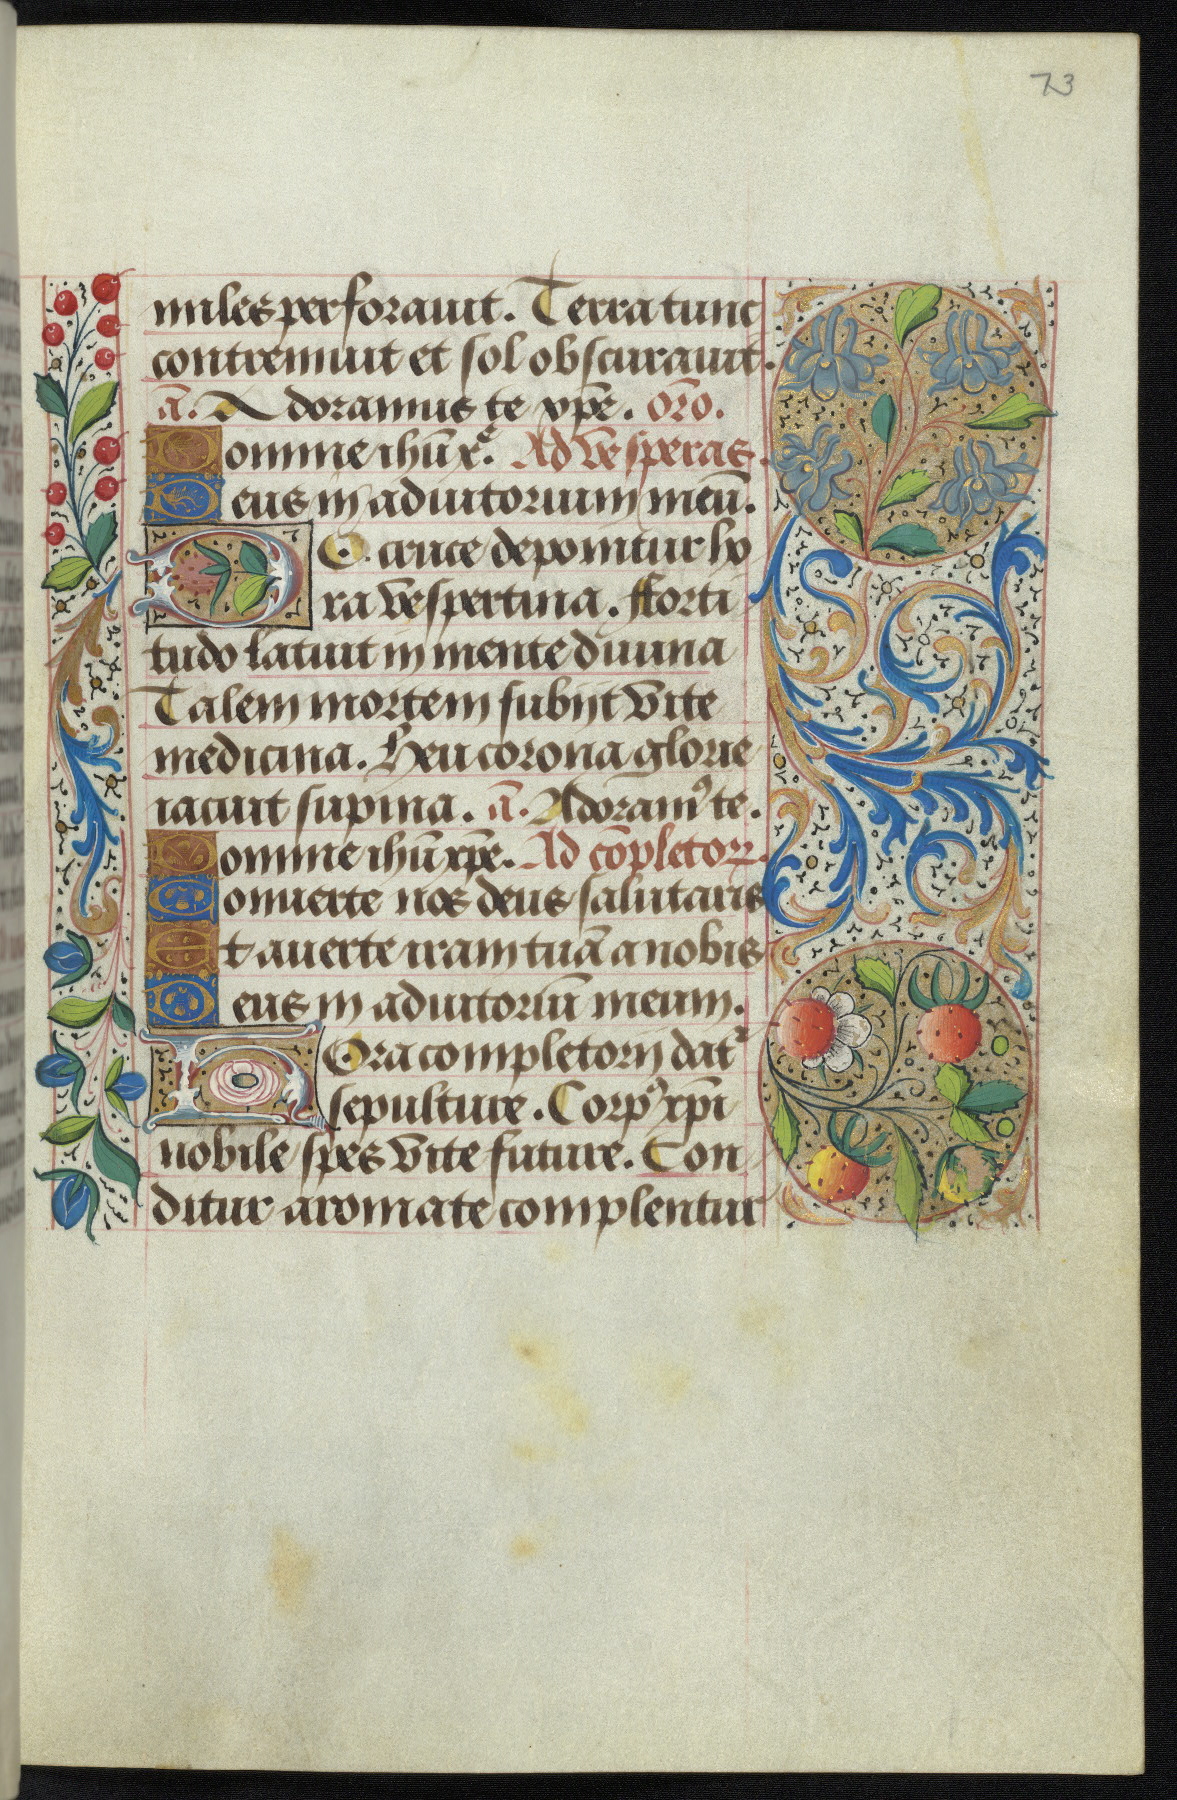 73
miles perforauit. Terra tunc
contremuit et sol obscurauit.
a̅. Adoramus te xpe̅. or̅o.
Domine ihu̅ x̅e. Ad vesperas.
Deus in adiutorium meu̅.
DE cruce deponitur ho
ra vespertina. fforti
tudo latuit in mente diuina
Talem mortem subijt vite
medicina. Heu corona glorie
iacuit supina. a̅. Adoramꝰ te.
Domine ihu̅ xp̅e. Ad co̅pletoꝝ.
Conuerte nos deus salutaris
Et auerte iram tua̅ a nobis
Deus in adiutoriu̅ meum.
HOra completorij dat᷑
sepulture. Corpꝰ xp̅i
nobile spes vite future. Con
ditur aromate complentur